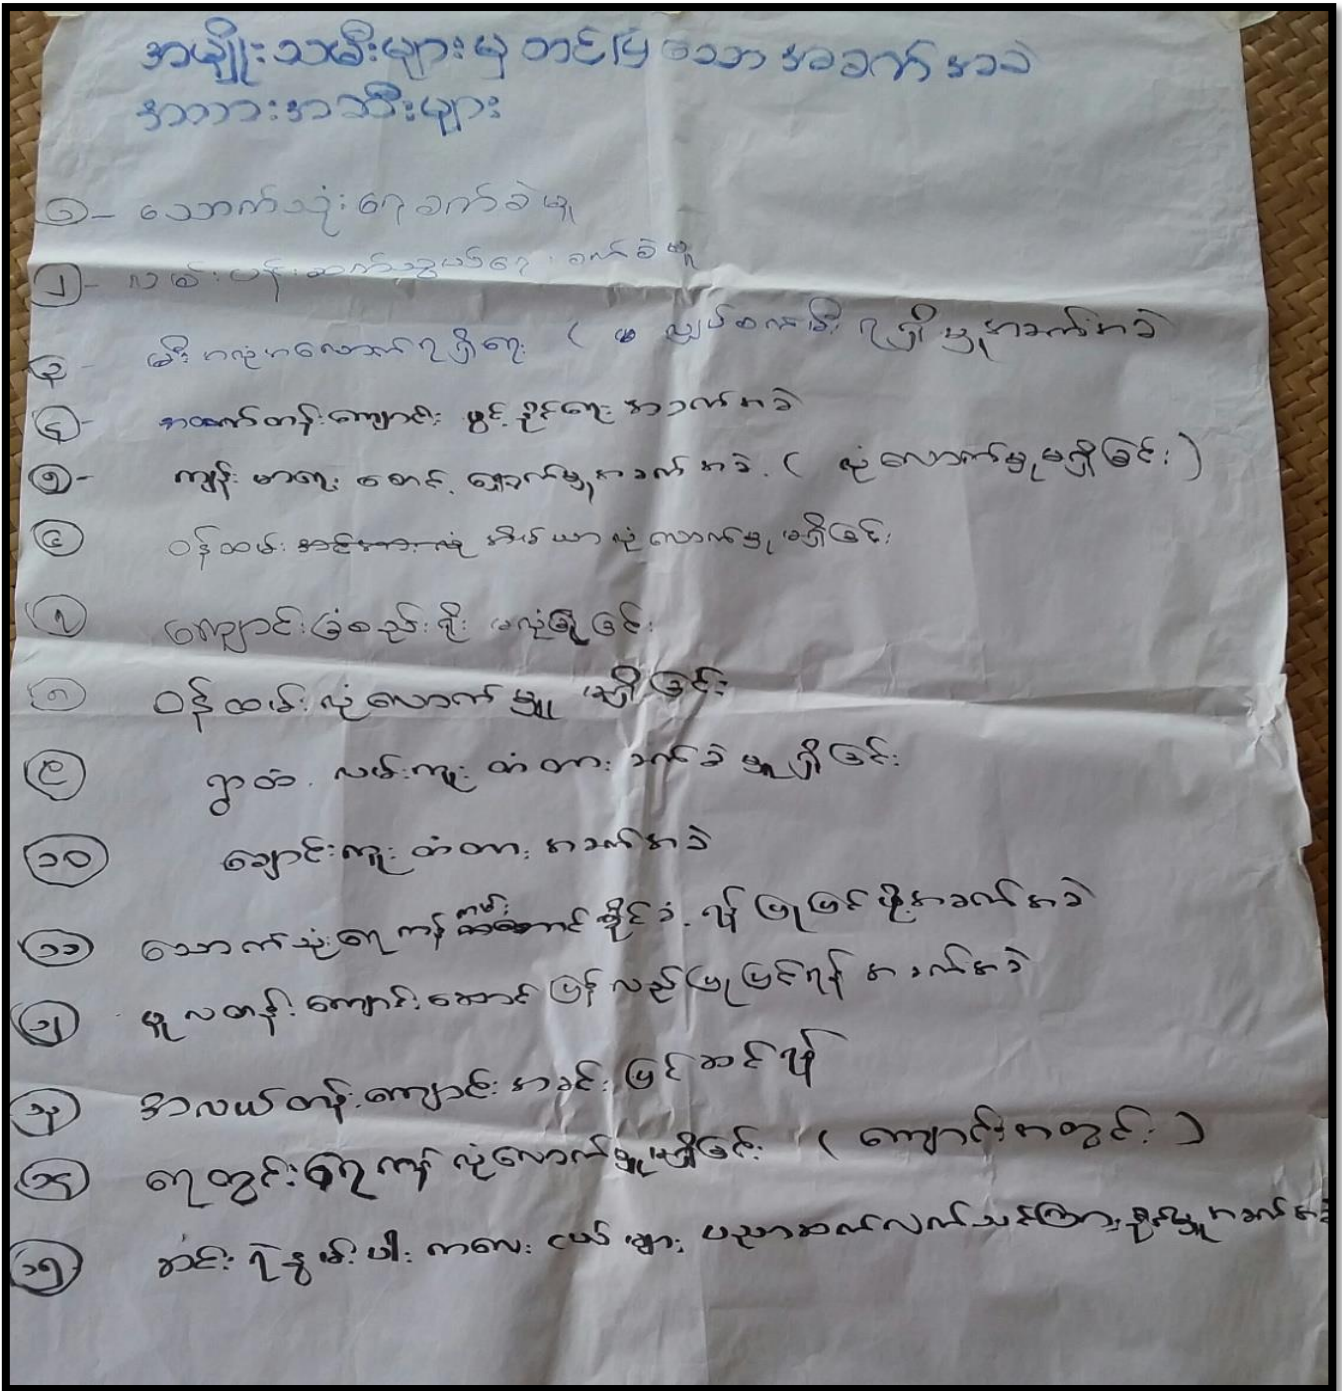 အမျိုးသမီးများမှ တင်ပြသော အခက်အခဲ
အတားအဆီးများ
၁- သောက်သုံးရေခက်ခဲမှု
၂- လမ်းပန်းဆက်သွယ်ရေး ခက်ခဲမှု
၃- မီးအလုံအလောက်ရရှိရေး ( မ လျှပ်စစ်မီး ရရှိမှုအခက်အခဲ
၄- အထက်တန်းကျောင်း ဖွင့်နိုင်ရေး အခက်အခဲ
၅- ကျန်းမာရေး စောင့်ရှောက်မှုအခက်အခဲ. ( လုံလောက်မှုမရှိခြင်း )
၆ ဝန်ထမ်း အိမ်ယာလုံလောက်မှု မရှိခြင်း
၇ ကျောင်းခြံစည်းရိုး မလုံခြုံခြင်း
၈ ဝန်ထမ်းလုံလောက်မှု မရှိခြင်း
၉ ရွာထဲ. လမ်းကူးတံတား ခက်ခဲမှုရှိခြင်း
၁၀ ချောင်းကူးတံတား အခက်အခဲ
၁၁ သောက်သုံးရေကန် ရန် ပြုပြင်ဖို့အခက်အခဲ
၁၂ မူလတန်းကျောင်းဆောင် ပြန်လည်ပြုပြင်ရန် အခက်အခဲ
၁၃ အလယ်တန်းကျောင်းအခင်း ပြင်ဆင်ရန်
၁၄ ရေတွင်းရေကန် လုံလောက်မှုမရှိခြင်း ( ကျောင်းအတွင်း )
၁၅ ဆင်းရဲနွမ်းပါးကလေးငယ်များ ပညာဆက်လက်သင်ကြားနိုင်မှုအခက်အခဲ